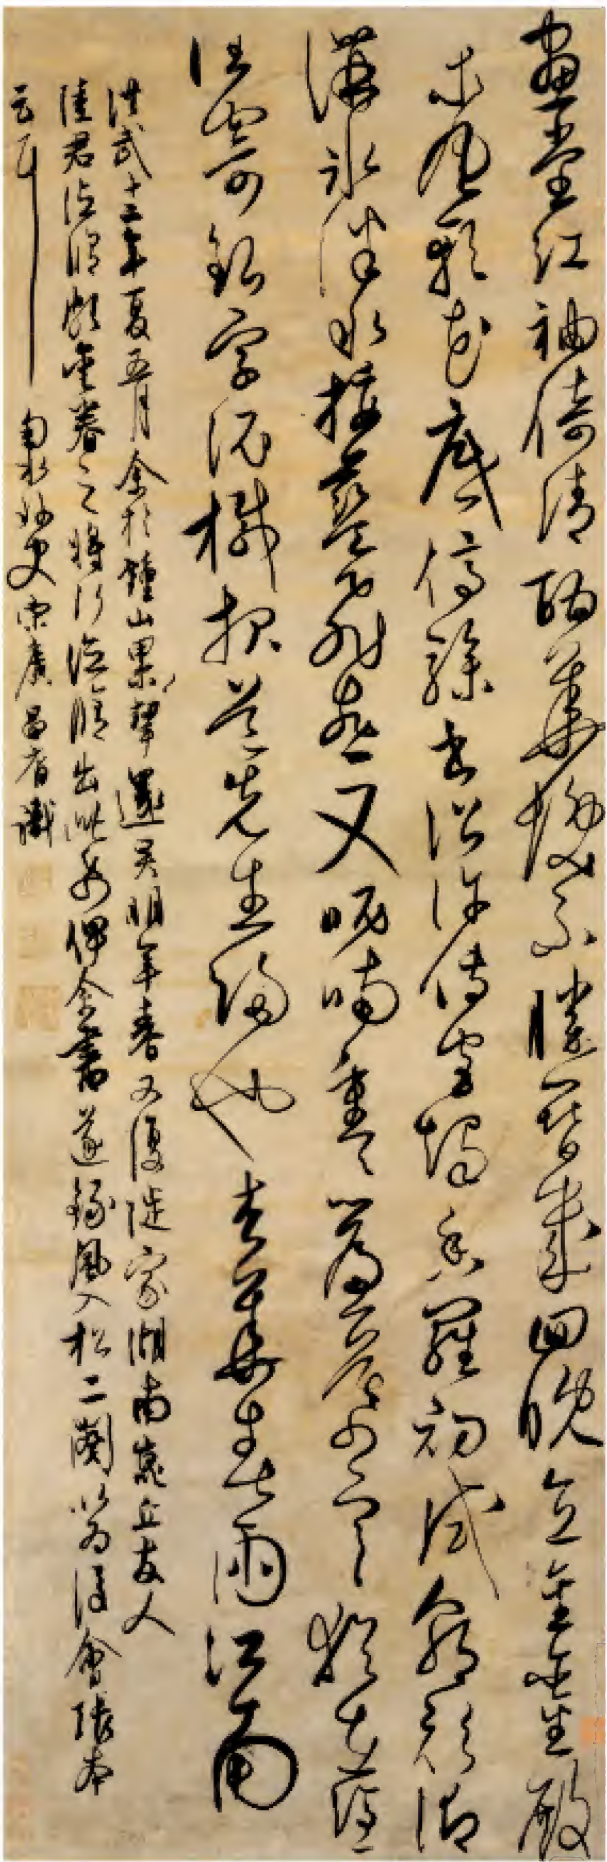 畫堂紅袖倚清酣華髮不勝簪幾回晚直金鑾殿
東風軟花底停驂書詔許傳宮燭香羅初試朝衫御
溝冰泮水挼藍飛燕又呢喃重重簾幕寒猶在憑
誰寄銀字泥緘報道先生歸也杏花春雨江南
洪武十二年夏五月余於鍾山還吳明年春又復徙家湖南嵩丘友人
陸君頗眷之將行出此紙俾余書遂錄風入松二闋以為後會張本
云耳 東海漫史宋廣昌裔識